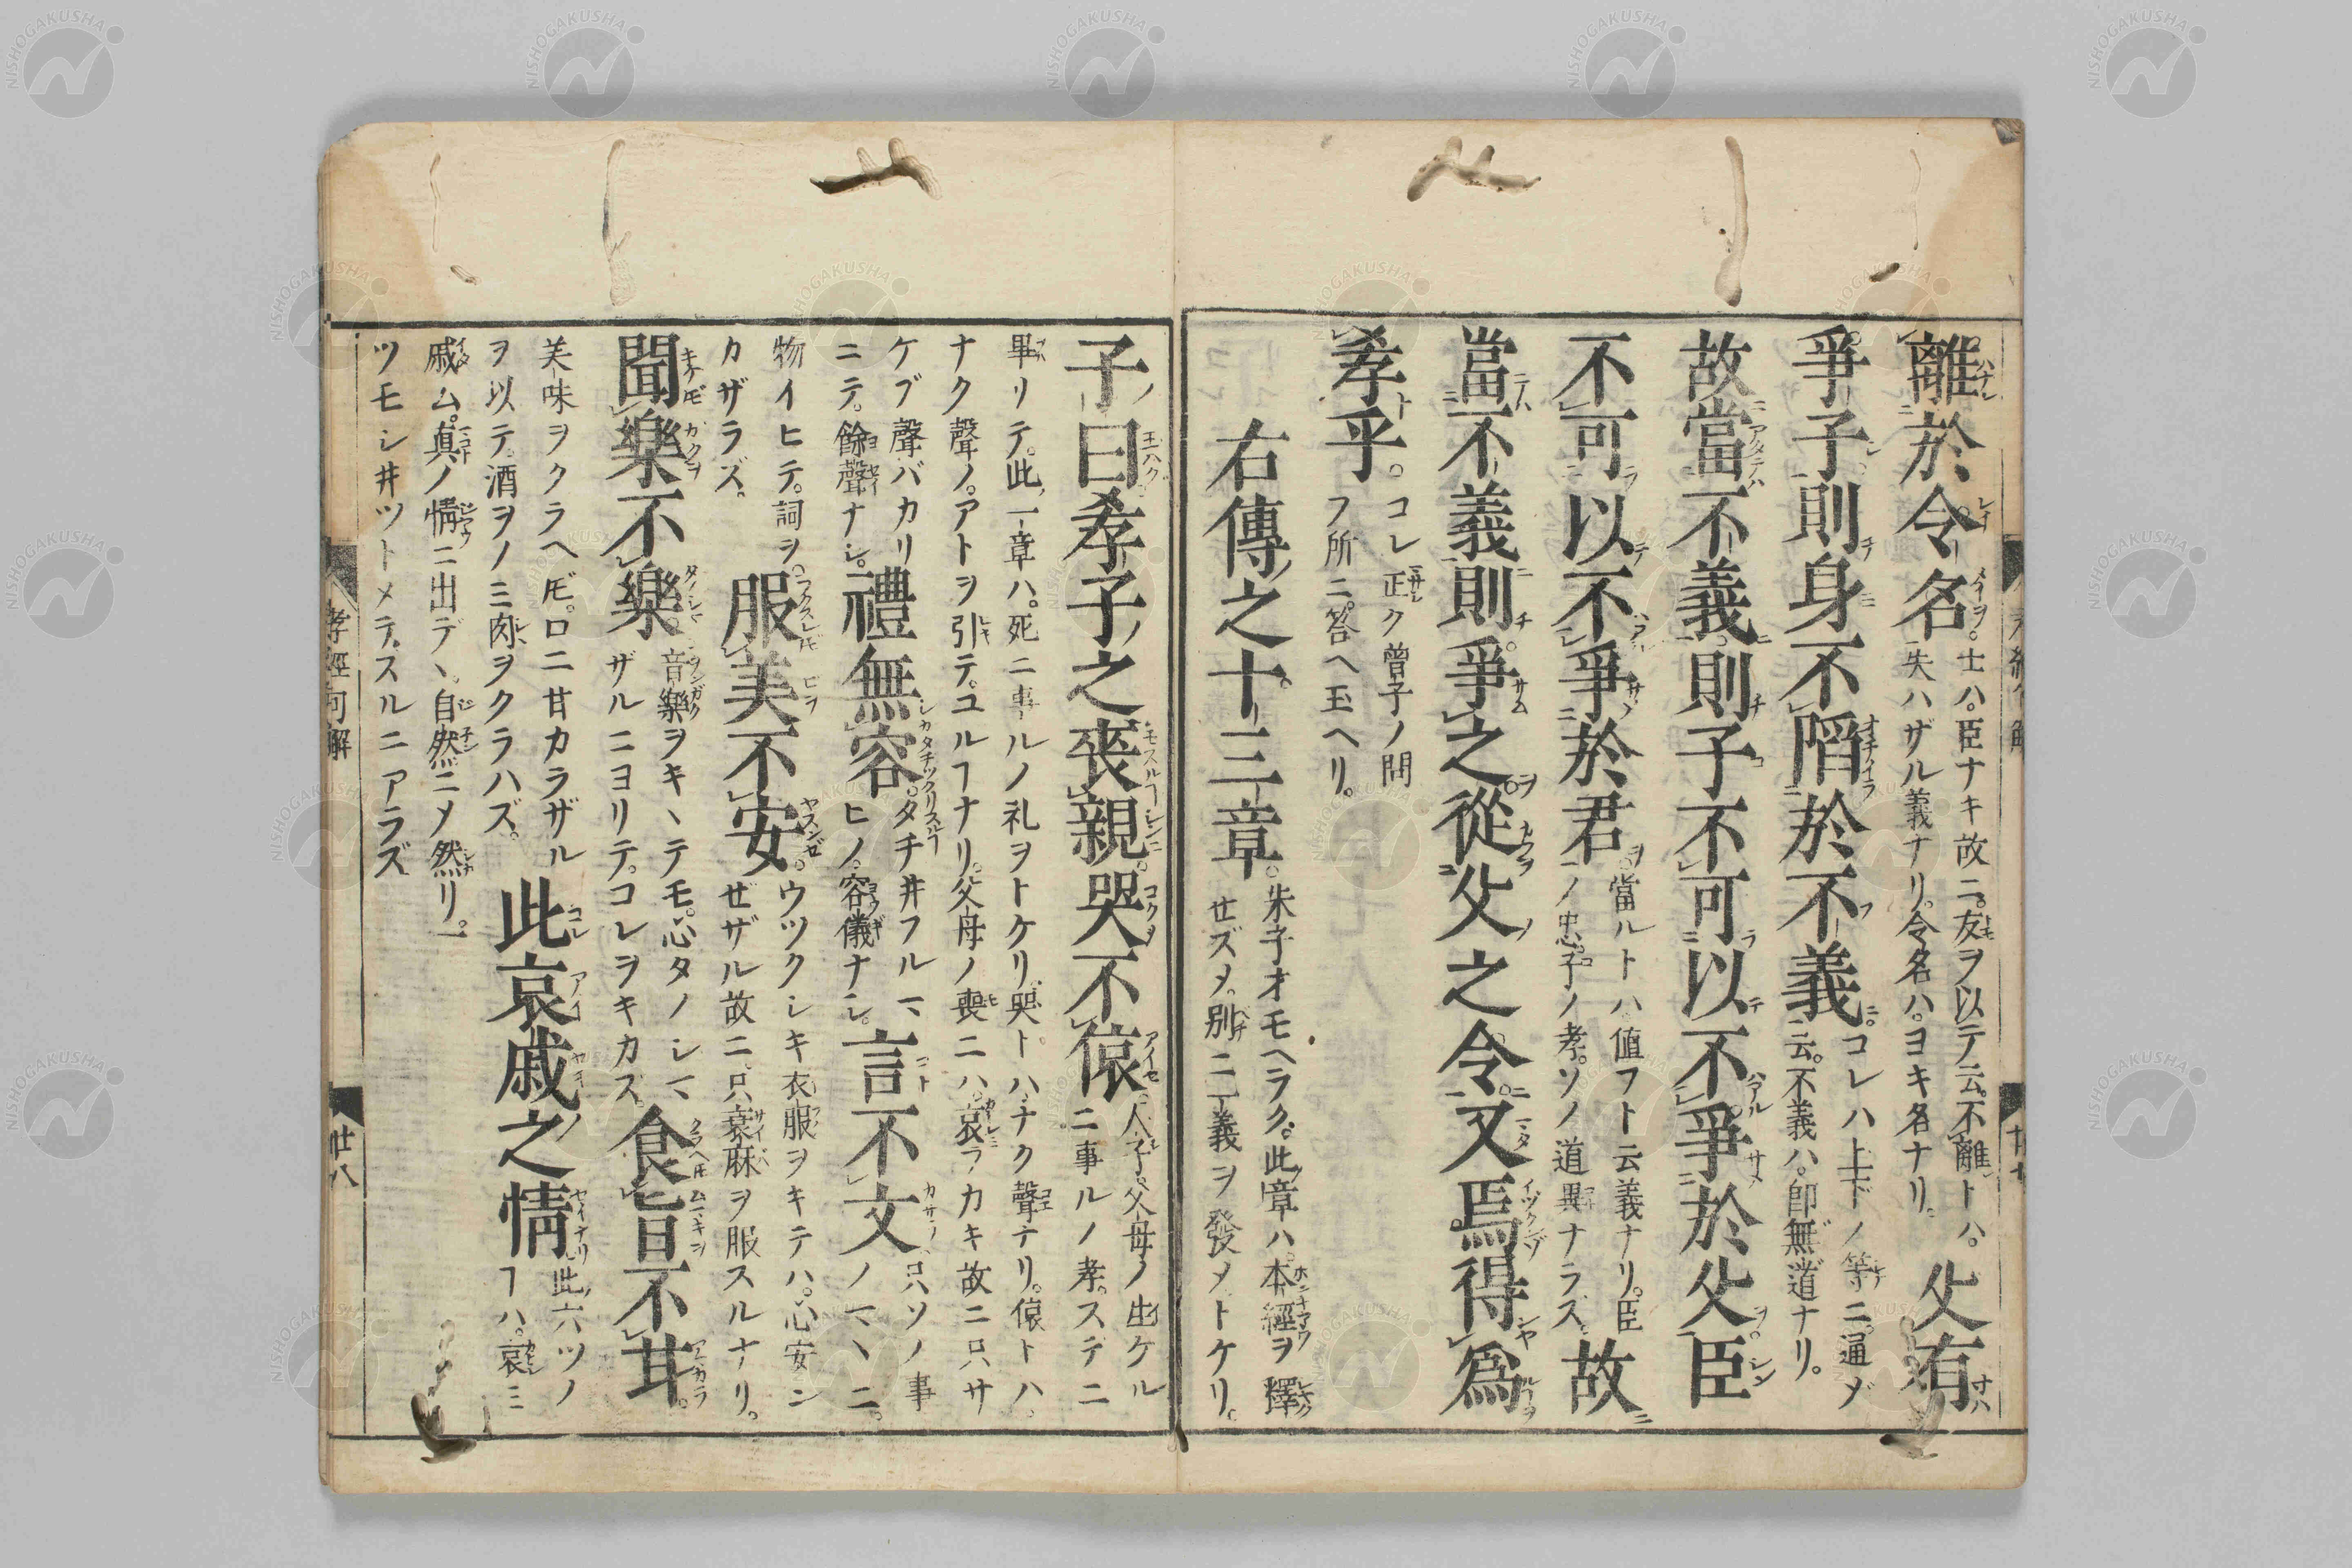 離於令名。士ハ。臣ナキ故ニ。友ヲ以テ云。不離トハ。
失ハザル義ナリ。令名ハ。ヨキ名ナリ。父有
爭子則身不陷於不義。コレハ上下ノ等ニ通〆
云。不義ハ。即無道ナリ。
故當不義。則子不可以不爭於父。臣
不可以不爭於君。當ルトハ値フト云義ナリ。臣
ノ忠。子ノ孝。ソノ道異ナラズ。故
當不義則爭之。從父之令。又焉得爲
孝乎。コレ正ク曾子ノ問
フ所ニ。答ヘ玉ヘリ。
右傳之十三章。朱子オモヘラク。此章ハ。本經ヲ釋
せズ〆。別ニ一義ヲ發メトケリ。
子曰孝子之喪親。哭不偯。人子。父母ノ生ケル
ニ事ルノ孝。ステニ
畢リテ。此一章ハ。死ニ事ルノ礼ヲトケリ。哭トハ。ナク聲ナリ。偯トハ。
ナク聲ノ。アトヲ引テ。ユルヿナリ。父母ノ喪ニハ。哀フカキ故ニ只サ
ケブ聲バカリ
ニテ。餘聲ナシ。禮無容。タチ井フルマ
ヒノ。容儀ナシ。言不文。只ソノ事
ノマヽニ。
物イヒテ。詞ヲ。
カザラズ。服美不安。ウツクシキ衣服ヲキテハ。心安ン
ぜザル故ニ。只衰麻ヲ服スルナリ。
聞樂不樂。音樂ヲキヽテモ。心タノシマ
ザルニヨリテ。コレヲキカズ。食旨不甘。
美味ヲクラヘ𪜈。口ニ甘カラザル
ヲ以テ。酒ヲノミ肉ヲクラハズ。此哀戚之情。此六ツノ
ヿハ。哀ミ
戚ム。真ノ情ニ出デヽ。自然ニ〆然リ。
ツモシ井ツトメテ。スルニアラズ
孝經句解
廿八